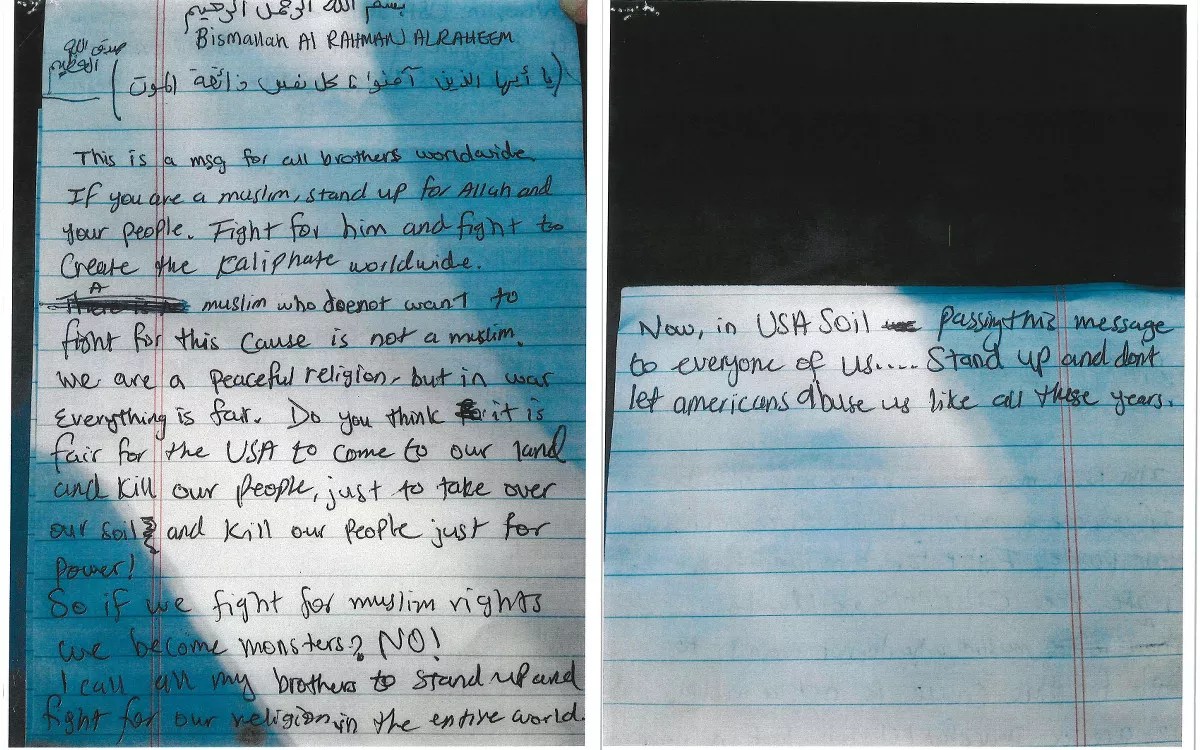 بسم الله الرحمن الرحيم
Bismallah Al RAHMAN ALRAHEEM
صدق الله
العظيم
(يا أيها الذين آمنوا كل نفس ذائقة الموت)
This is a msg for all brothers worldwide
If you are a muslim, stand up for Allah and
your people. Fight for him and fight to
Create the Kaliphate worldwide.
A muslim who doesnot want to
fight for this cause is not a muslim.
We are a peaceful religion, but in war
Everything is fair. Do you think it is
fair for the USA to come to our land
and kill our people, just to take over
our soil and kill our people just for
power!
So if we fight for muslim rights
we become monsters? NO!
I call all my brothers to stand up and
fight for our religion in the entire world.
Now, in USA Soil passing this message
to everyone of us.... Stand up and dont
let americans abuse us like all these years.